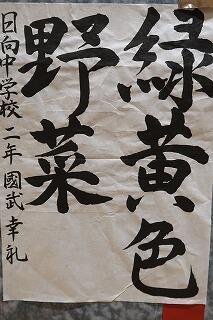 緑黄色
野菜
日向中学校 二年 國武幸礼